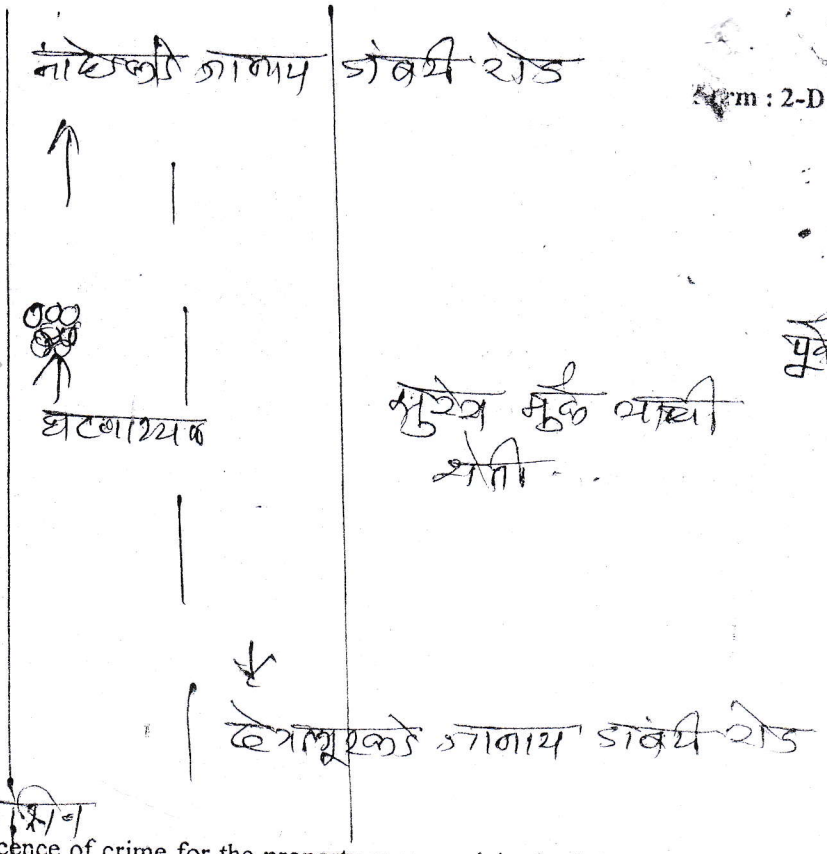 नांदेडकडे जाणाय डांबरी रोड
Form : 2-D
पूर्व
घटनास्थळ
सुरेश मुळे यांची
शेती
देगलूरकडे जाणाय डांबरी रोड
cence of crime for the